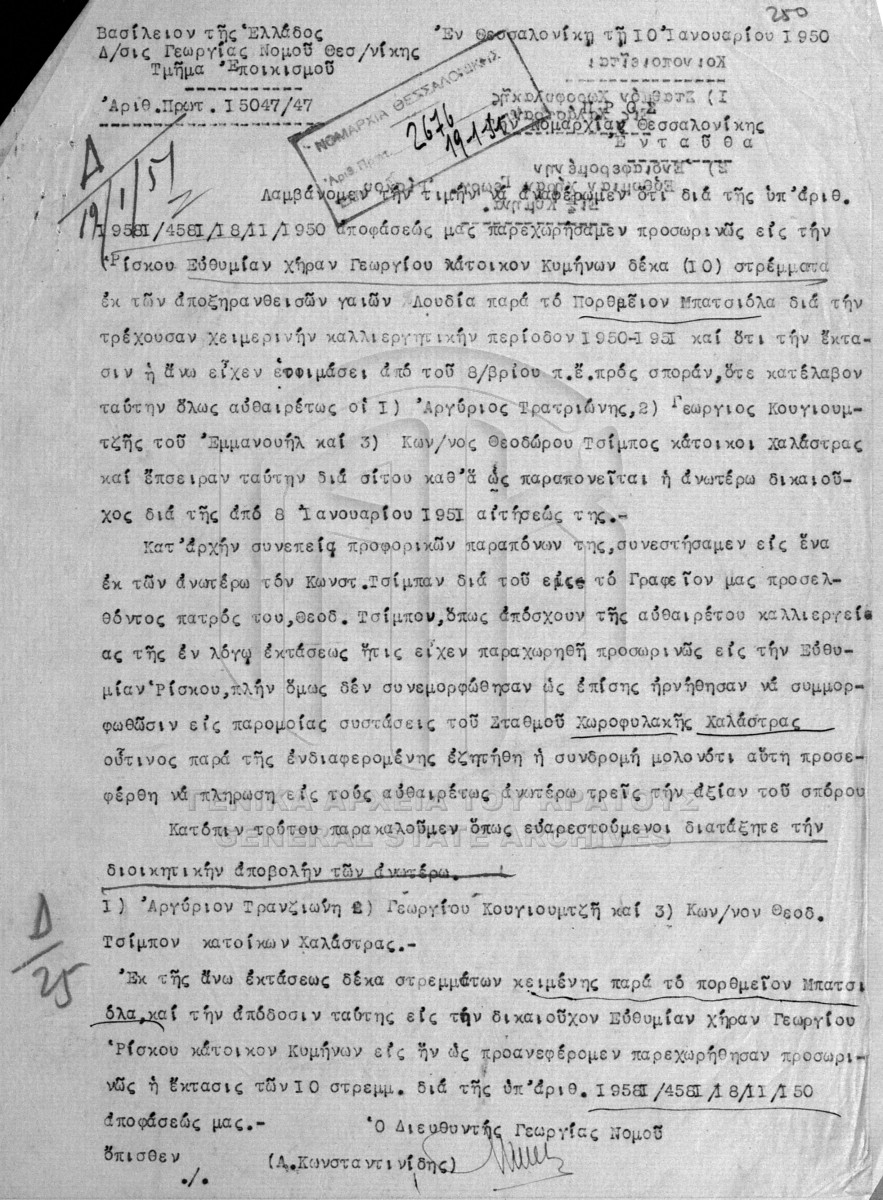 250
Βασίλειον τῆς Ἑλλάδος
Δ/σις Γεωργίας Νομοῦ Θεσ/νίκης
Τμῆμα Ἐποικισμοῦ
Ἀριθ.Πρωτ. 15047/47
Ἐν Θεσσαλονίκῃ τῇ 10 Ἰανουαρίου 1950
Π Ρ Ο Σ
Νομαρχίαν Θεσσαλονίκης
Ἐνταῦθα
ΝΟΜΑΡΧΙΑ ΘΕΣΣΑΛΟΝΙΚΗΣ
Ἀριθ. Πρωτ.
2676
19-1-51
Δ
19/1/51
Λαμβάνομεν τήν τιμήν νά ἀναφέρωμεν ὅτι διά τῆς ὑπ'ἀριθ.
19581/4581/18/11/1950 ἀποφάσεώς μας παρεχωρήσαμεν προσωρινῶς εἰς τήν
Ρίσκου Εὐθυμίαν χήραν Γεωργίου κάτοικον Κυμήνων δέκα (10) στρέμματα
ἐκ τῶν ἀποξηρανθεισῶν γαιῶν Λουδία παρά τό Πορθμεῖον Μπατσιόλα διά τήν
τρέχουσαν χειμερινήν καλλιεργητικήν περίοδον 1950-1951 καί ὅτι τήν ἔκτα-
σιν ἡ ἄνω εἶχεν ἑτοιμάσει ἀπό τοῦ 8/βρίου π.ἔ.πρός σποράν,ὅτε κατέλαβον
ταύτην ὅλως αὐθαιρέτως οἱ 1) Ἀργύριος Τρατριώνης,2) Γεωργιος Κουγιουμ-
τζῆς τοῦ Ἐμμανουήλ καί 3) Κων/νος Θεοδώρου Τσίμπος κάτοικοι Χαλάστρας
καί ἔπσειραν ταύτην διά σίτου καθ'ἅ ὡς παραπονεῖται ἡ ἀνωτέρω δικαιοῦ-
χος διά τῆς ἀπό 8 Ἰανουαρίου 1951 αἰτήσεώς της.-
Κατ'ἀρχήν συνεπείᾳ προφορικῶν παραπόνων της,συνεστήσαμεν εἰς ἕνα
ἐκ τῶν ἀνωτέρω τόν Κωνστ.Τσίμπαν διά τοῦ εἰς τό Γραφεῖον μας προσελ-
θόντος πατρός του,Θεοδ. Τσίμπον,ὅπως ἀπόσχουν τῆς αὐθαιρέτου καλλιεργεί
ας τῆς ἐν λόγῳ ἐκτάσεως ἥτις εἶχεν παραχωρηθῆ προσωρινῶς εἰς τήν Εὐθυ-
μίαν Ρίσκου,πλήν ὅμως δέν συνεμορφώθησαν ὡς ἐπίσης ἠρνήθησαν νά συμμορ-
φωθῶσιν εἰς παρομοίας συστάσεις τοῦ Σταθμοῦ Χωροφυλακῆς Χαλάστρας
οὗτινος παρά τῆς ἐνδιαφερομένης ἐζητήθη ἡ συνδρομή μολονότι αὕτη προσε-
φέρθη νά πληρωση εἰς τούς αὐθαιρέτως ἀνωτέρω τρεῖς τήν ἀξίαν τοῦ σπόρου
Κατόπιν τούτου παρακαλοῦμεν ὅπως εὐαρεστούμενοι διατάξητε τήν
διοικητικήν ἀποβολήν τῶν ἀνωτέρω.
1) Ἀργύριον Τρανζιωνη 2) Γεωργίου Κουγιουμτζῆ καί 3) Κων/νον Θεοδ.
Τσίμπον κατοίκων Χαλάστρας.-
Δ/25
Ἐκ τῆς ἄνω ἐκτάσεως δέκα στρεμμάτων κειμένης παρά τό πορθμεῖον Μπατσι
όλα,καί τήν ἀπόδοσιν ταύτης εἰς τήν δικαιοῦχον Εὐθυμίαν χήραν Γεωργίου
Ρίσκου κάτοικον Κυμήνων εἰς ἥν ὡς προανεφέρομεν παρεχωρήθησαν προσωρι-
νῶς ἡ ἔκτασις τῶν 10 στρεμμ. διά τῆς ὑπ'ἀριθ. 19581/4581/18/11/150
ἀποφάσεώς μας.-
Ὁ Διευθυντής Γεωργίας Νομοῦ
ὄπισθεν
./.
(Α.Κωνσταντινίδης)
ΓΕΝΙΚΑ ΑΡΧΕΙΑ ΤΟΥ ΚΡΑΤΟΥΣ
GENERAL STATE ARCHIVES